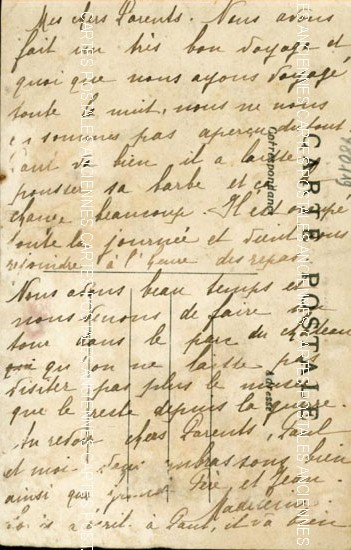 Mes chers Parents. Nous avons
fait un très bon voyage et
quoi que nous ayons voyagé
toute la nuit, nous ne nous
en sommes pas aperçu du tout
bien il a laissé
pousser sa barbe et ça
change beaucoup. Il est occupé
toute la journée et vient nous
rejoindre à l'heure des repas.
Nous avons beau temps et
nous venons de faire un
tour dans le parc du château
qu'on ne laisse pas
visiter pas plus le musée
que le reste depuis la guerre.
Au revoir chers Parents, Paul
et moi vous embrassons bien
ainsi que grand Père et Jean.
Madeleine
à Paul, il va bien
CARTE POSTALE
Correspondance
Adresse
CARTES POSTALES ANCIENNES